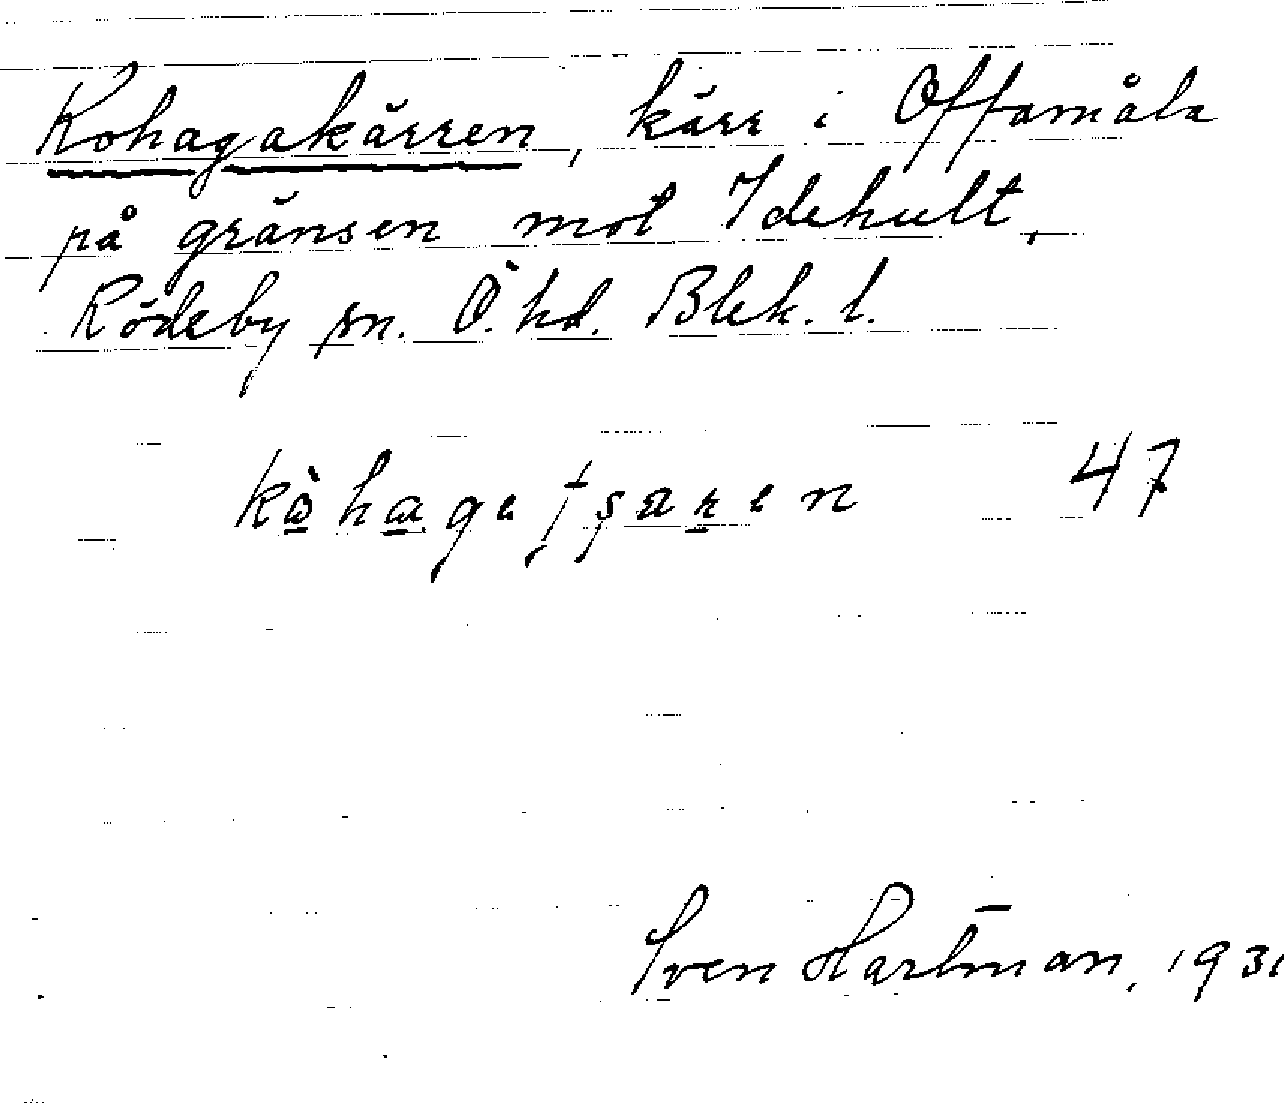 Kohagakärren, kärr i Offamåla
på gränsen mot Idehult,
Rödeby sn. Ö. hd. Blek. l.
47
Sven Hartman, 1931